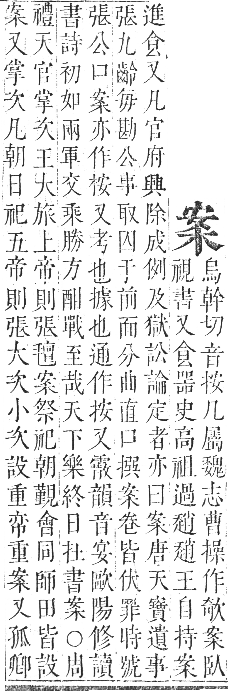 案
烏幹切音按几屬魏志曹操作欹案臥
視書又食器史高祖過趙趙王自持案
進食又凡官府興除成例及獄訟論定者亦曰案唐天寶遺事
張九齡每勘公事取囚于前而分曲直口撰案卷皆伏罪時號
張公口案亦作桉又考也據也通作按又霰韻音宴歐陽修讀
書詩初如兩軍交乘勝方酣戰至哉天下樂終日在書案○周
禮天官掌次王大旅上帝則張氊案祭祀朝覲會同師田皆設
案又掌次凡朝日祀五帝則張大次小次設重帟重案又孤卿